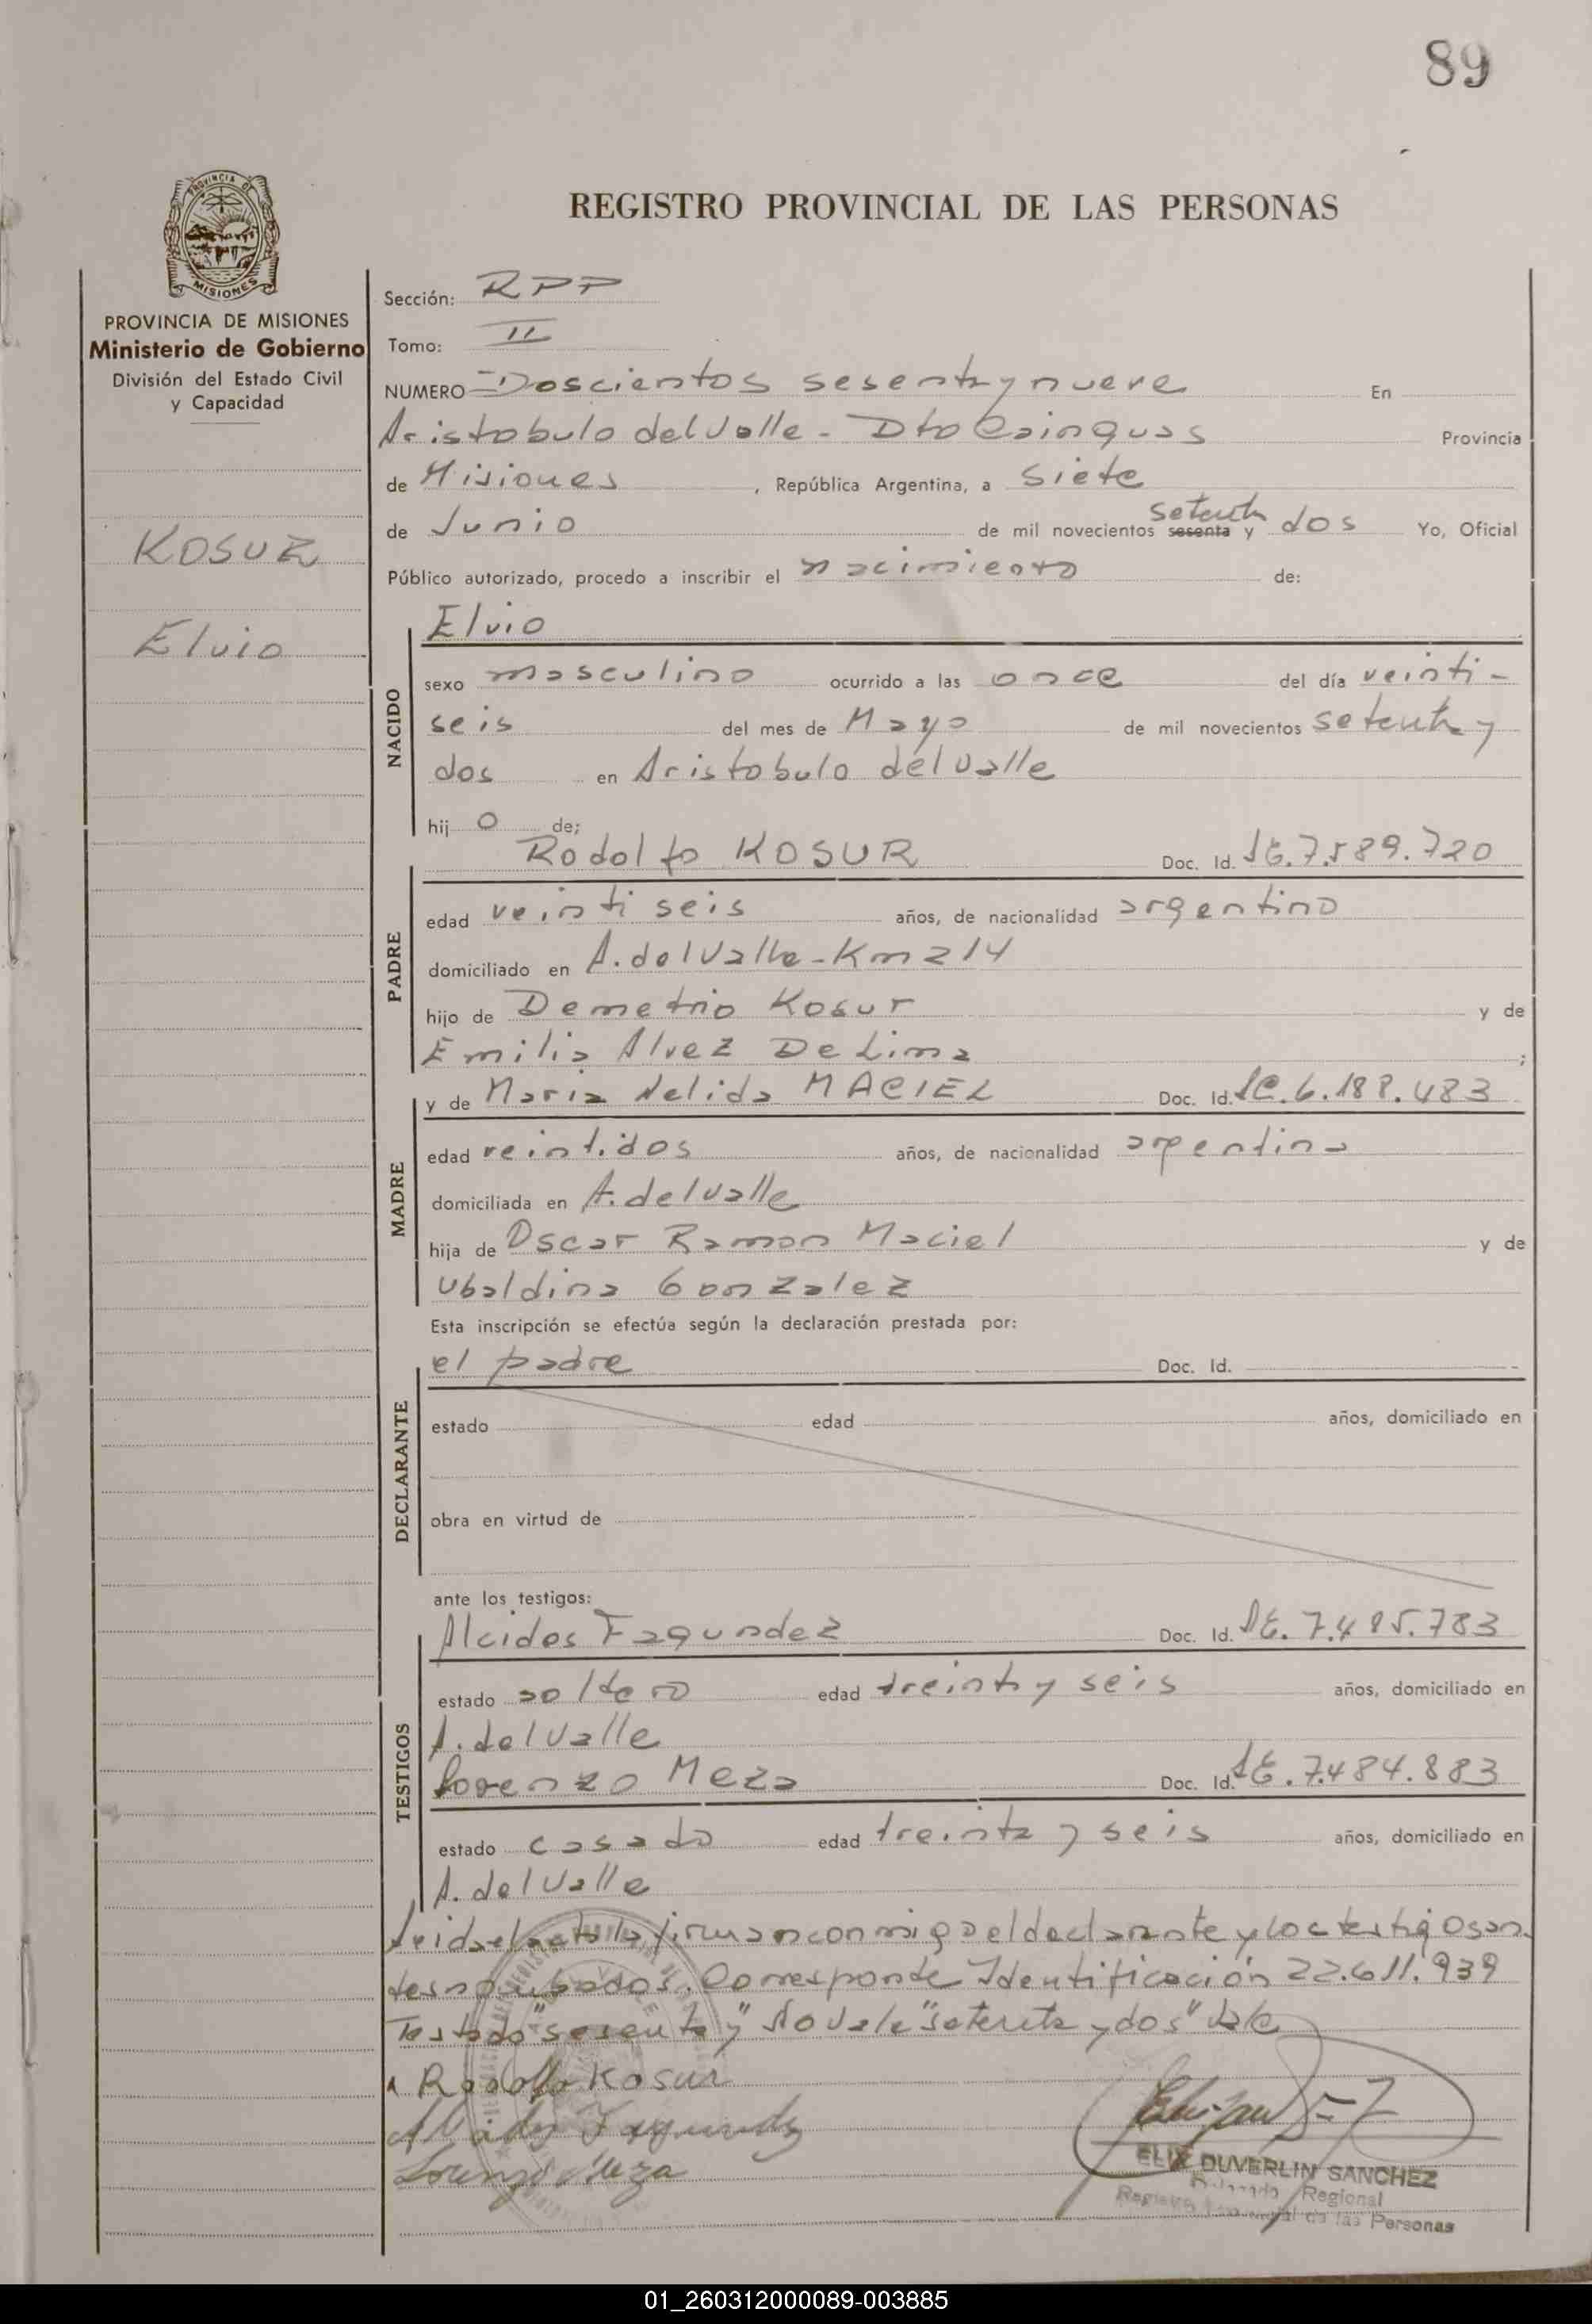 89
REGISTRO PROVINCIAL DE LAS PERSONAS
PROVINCIA DE
MISIONES
PROVINCIA DE MISIONES
Ministerio de Gobierno
División del Estado Civil
y Capacidad
KOSUR
Elvio
Sección: RPP
Tomo: II
NUMERO Doscientos sesenta y nueve En
Aristobulo del Valle - Dto Cainguas Provincia
de Misiones, República Argentina, a Siete
de Junio de mil novecientos sesenta y setenta dos Yo, Oficial
Público autorizado, procedo a inscribir el nacimiento de:
NACIDO
Elvio
sexo masculino ocurrido a las once del día veinti-
seis del mes de Mayo de mil novecientos setenta y
dos en Aristobulo del Valle
hij o de;
PADRE
Rodolfo KOSUR Doc. Id. LE.7.589.720
edad veintiseis años, de nacionalidad argentino
domiciliado en A. del Valle - Km 214
hijo de Demetrio Kosur y de
Emilia Alvez De Lima ;
MADRE
y de Maria Nelida MACIEL Doc. Id. LC.6.188.483
edad veintidos años, de nacionalidad argentina
domiciliada en A. del Valle
hija de Oscar Ramon Maciel y de
Ubaldina Gonzalez
Esta inscripción se efectúa según la declaración prestada por:
DECLARANTE
el padre Doc. Id.
estado edad años, domiciliado en
obra en virtud de
ante los testigos:
TESTIGOS
Alcides Fagundez Doc. Id. LE.7.485.783
estado soltero edad treinta y seis años, domiciliado en
A. del Valle
Lorenzo Meza Doc. Id. LE.7.484.883
estado casado edad treinta y seis años, domiciliado en
A. del Valle
Leida el acta la firman conmigo el declarante y los testigos an-
tes nombrados. Corresponde Identificación 22.611.939
Testado "sesenta y" No vale "setenta y dos" Vale
Rodolfo Kosur
Alcides Fagundez
Lorenzo Meza
ELIX DUVERLIN SANCHEZ
Delegado Regional
Registro Provincial de las Personas
01_260312000089-003885